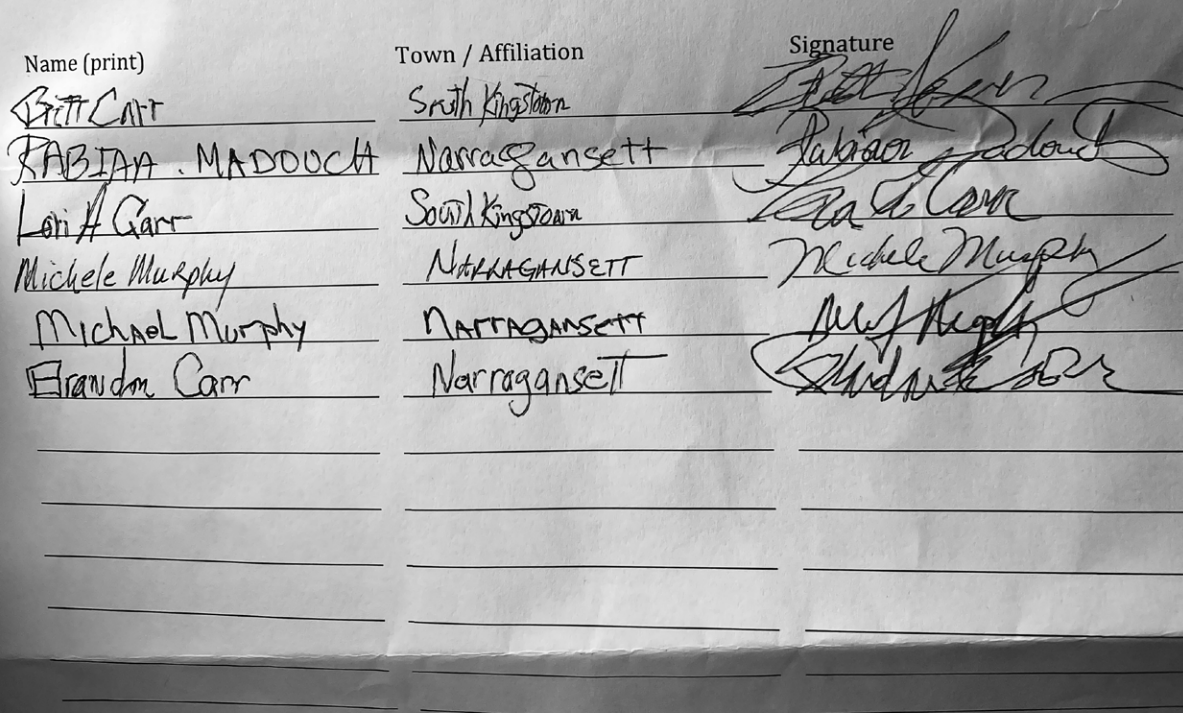 Name (print) Town / Affiliation Signature
Britt Carr South Kingstown
RABIAA . MADOUCH Narragansett Rabiaa Madouch
Lori A Carr South Kingstown Lori A Carr
Michele Murphy NARRAGANSETT Michele Murphy
Michael Murphy NARRAGANSETT
Brandon Carr Narragansett